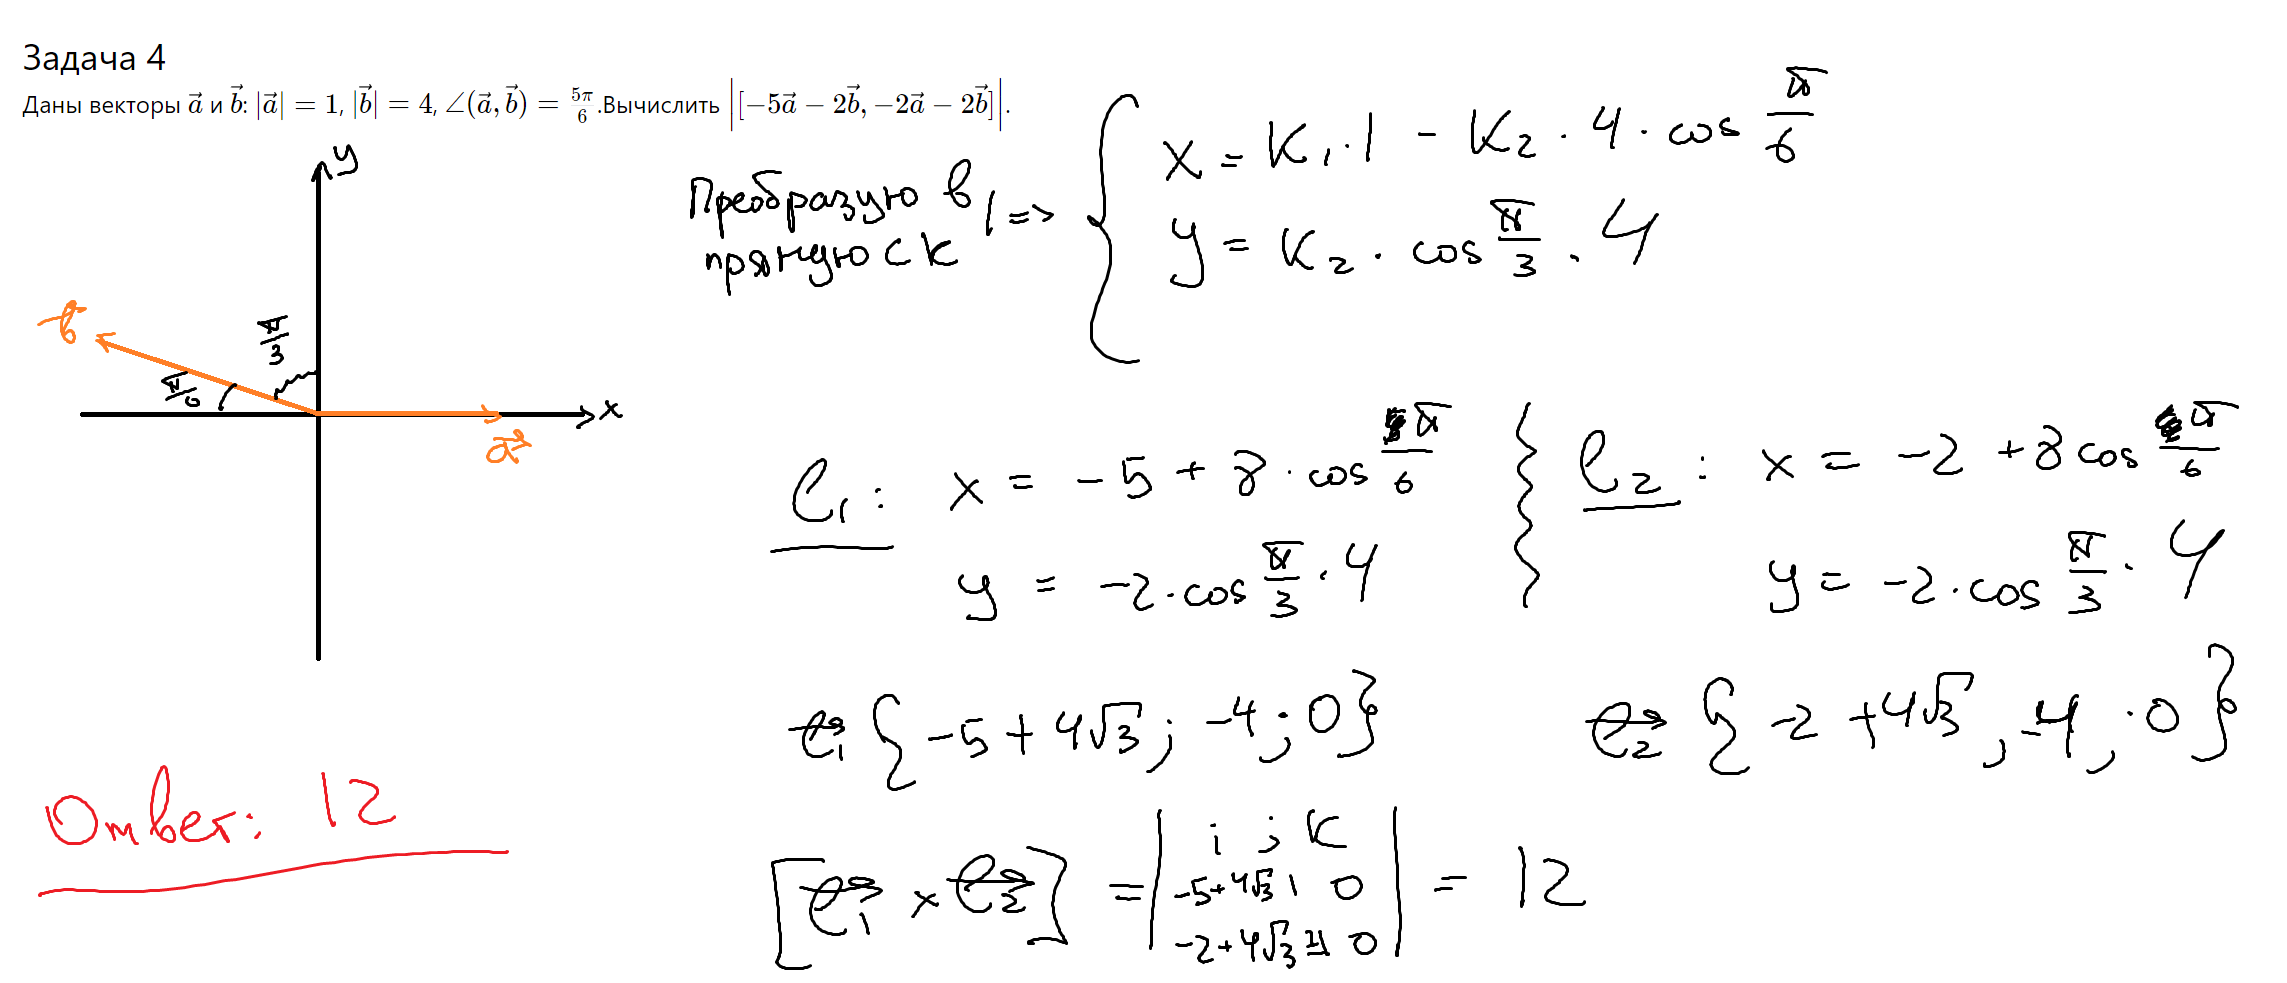 Задача 4
Даны векторы $\vec{a}$ и $\vec{b}$: $|\vec{a}| = 1$, $|\vec{b}| = 4$, $\angle(\vec{a}, \vec{b}) = \frac{5\pi}{6}$.Вычислить $\left|[-5\vec{a} - 2\vec{b}, -2\vec{a} - 2\vec{b}]\right|$.
y
x
$\vec{b}$
$\frac{\pi}{3}$
$\frac{\pi}{6}$
$\vec{a}$
Преобразую в
прямую СК
=>
$x = K_1 \cdot 1 - K_2 \cdot 4 \cdot \cos \frac{\pi}{6}$
$y = K_2 \cdot \cos \frac{\pi}{3} \cdot 4$
$e_1$: $x = -5 + 8 \cdot \cos \frac{\pi}{6}$
$y = -2 \cdot \cos \frac{\pi}{3} \cdot 4$
$e_2$: $x = -2 + 8 \cos \frac{\pi}{6}$
$y = -2 \cdot \cos \frac{\pi}{3} \cdot 4$
$\vec{e_1} \{-5 + 4\sqrt{3}; -4; 0\}$
$\vec{e_2} \{-2 + 4\sqrt{3}, -4; 0\}$
$[\vec{e_1} \times \vec{e_2}] =$
i j K
$-5+4\sqrt{3}$ 0
$-2+4\sqrt{3}$ 0
= 12
Ответ: 12